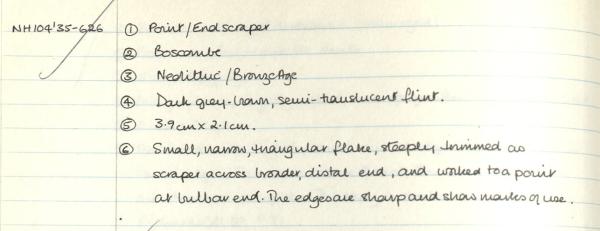 NH104'35-626 ① Point/Endscraper
② Boscombe
③ Neolithic/Bronze Age
④ Dark grey-brown, semi-translucent flint.
⑤ 3.9cm x 2.1cm.
⑥ Small, narrow, triangular flake, steeply trimmed as
scraper across broader, distal end, and worked to a point
at bulbar end. The edges are sharp and show marks of use.